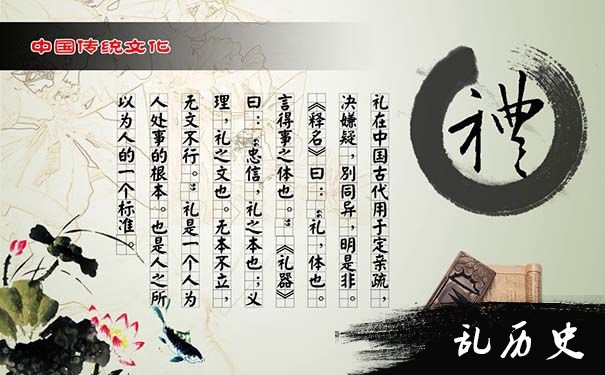 中国传统文化
禮
礼在中国古代用于定亲疏，
决嫌疑，别同异，明是非。
《释名》曰：“礼，体也。
言得事之体也。”《礼器》
曰：“忠信，礼之本也；义
理，礼之文也。无本不立，
无文不行。”礼是一个人为
人处事的根本。也是人之所
以为人的一个标准。
乱历史